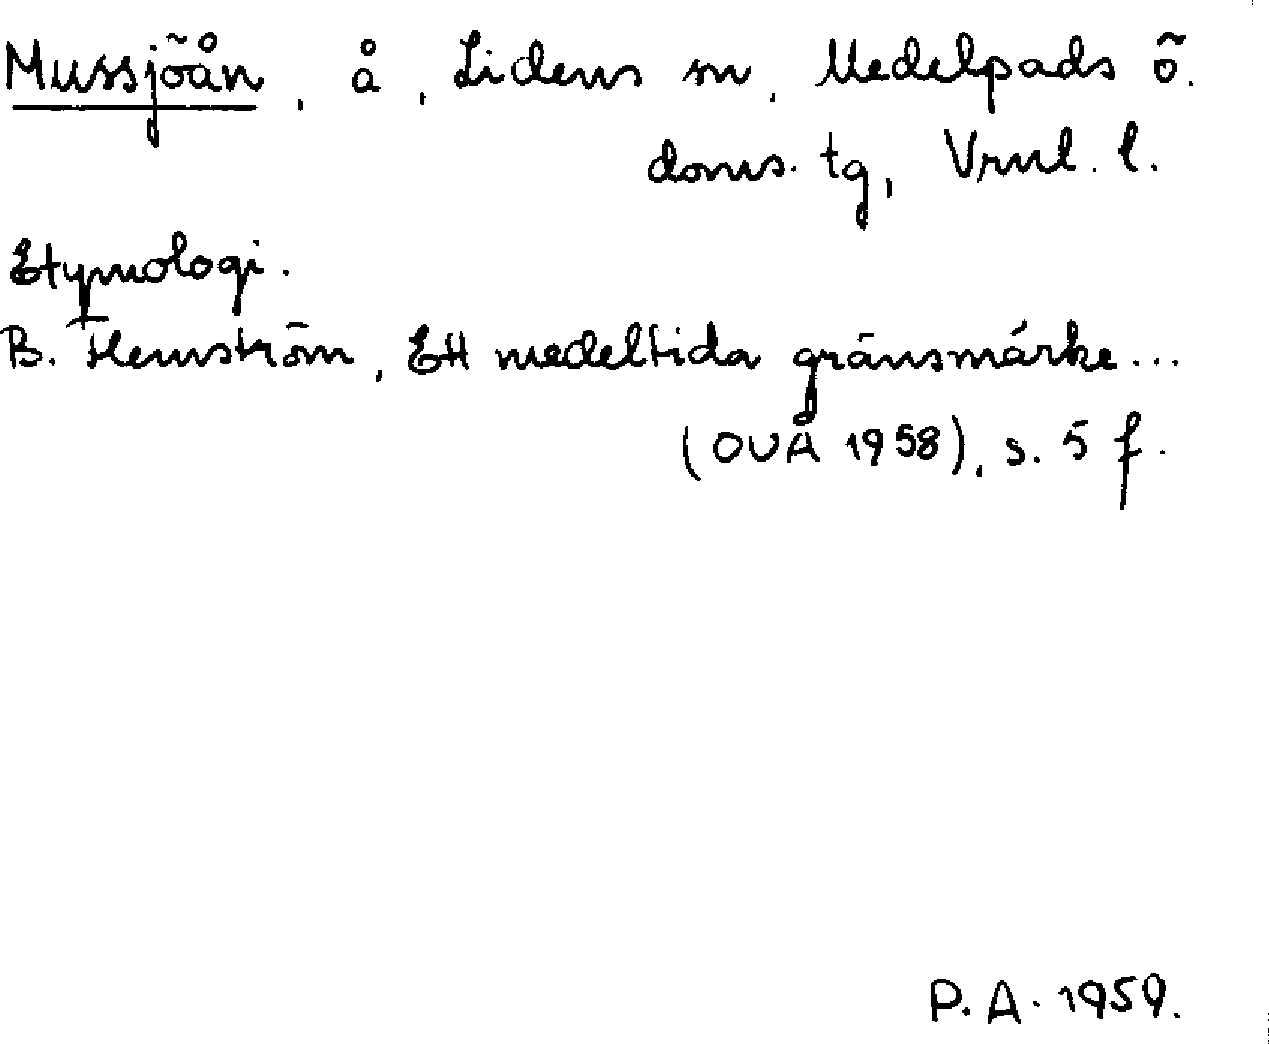 Mussjöån, å, Lidens sn, Medelpads ö.
doms. tg, Vrnl. l.
Etymologi.
B. Flemström, Ett medeltida gränsmärke...
(OUÅ 1958), s. 5 f.
P.A. 1959.